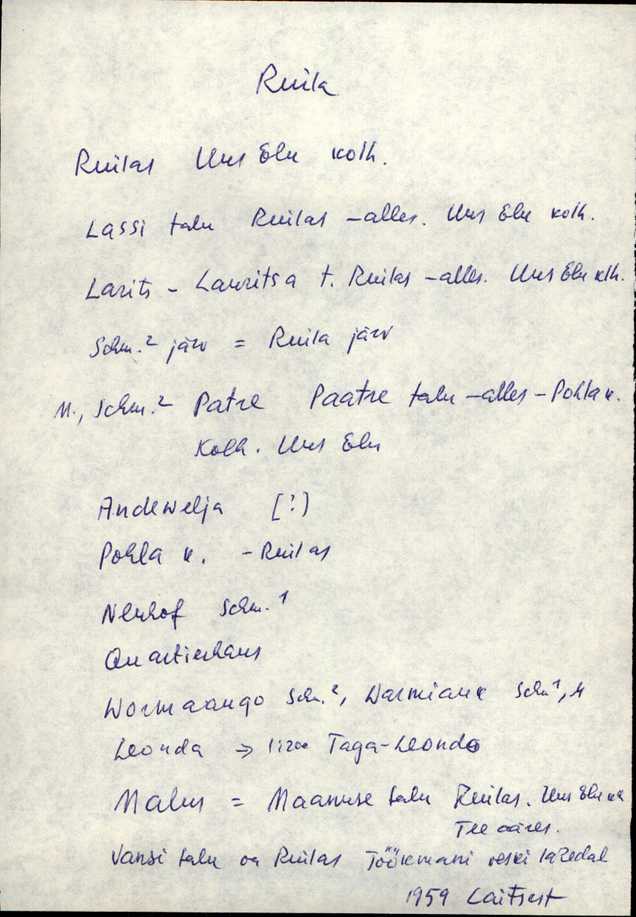 Ruila
Ruilas Uus Elu kolh.
Lassi talu Ruilas – alles. Uus Elu kolh.
Larits – Lauritsa t. Ruilas – alles. Uus Elu klh.
Schm.² järv = Ruila järv
M., Schm.² Patze Paatre talu – alles – Pohla k.
Kolh. Uus Elu
Andewelja [?]
Pohla k. – Ruilas
Neuhof Schm.¹
Quartierhaus
Wormaango Sch.², Warmiauk Sch¹, M
Leonda → Taga-Leonda
Malus = Maanuse talu Ruilas. Uus Elu
Tee ääres.
Vansi talu on Ruilas Töökmani veski lähedal
1959 Laitsest